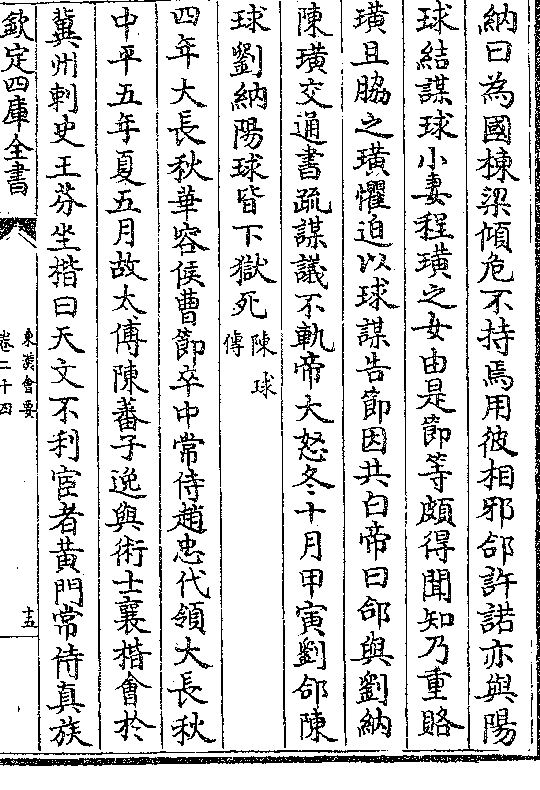 納曰為國棟梁傾危不持焉用彼相邪郃許諾亦與陽
球結謀球小妻程璜之女由是節等頗得聞知乃重賂
璜且脇之璜懼迫以球謀告節因共白帝曰郃與劉納
陳璜交通書疏謀議不軌帝大怒冬十月甲寅劉郃陳
球劉納陽球皆下獄死陳球
傳
四年大長秋華容侯曹節卒中常侍趙忠代領大長秋
中平五年夏五月故太傅陳蕃子逸與術士襄楷會於
冀州刺史王芬坐楷曰天文不利宦者黃門常侍真族
欽定四庫全書
東漢會要
卷二十四
十五